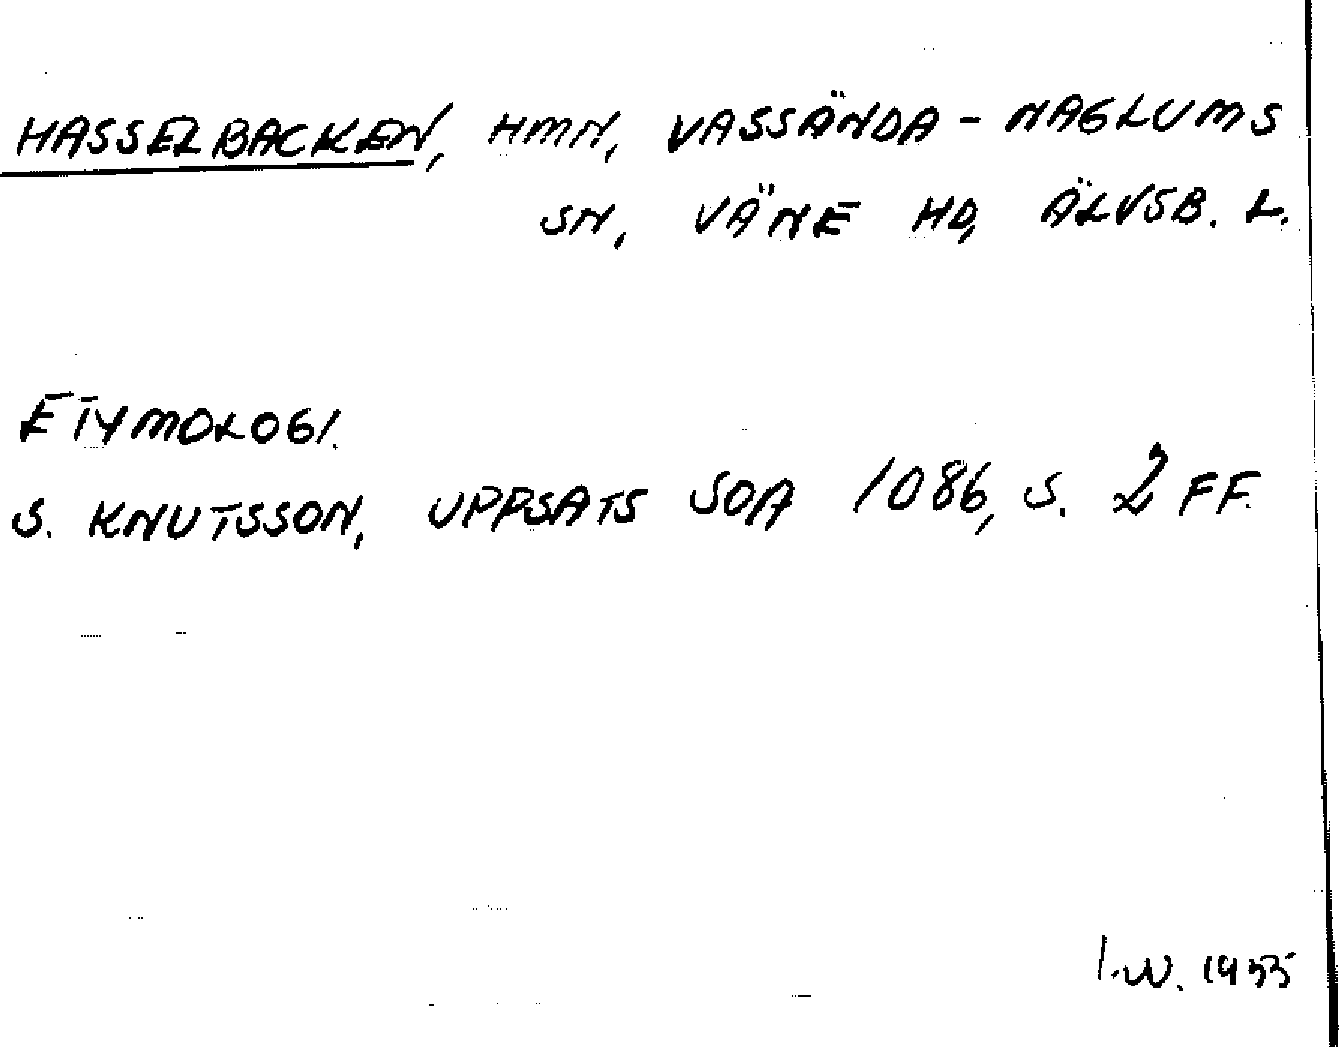 HASSELBACKEN, HMN, VASSÄNDA - NAGLUMS
SN, VÄNE HD, ÄLVSB. L.
ETYMOLOGI.
S. KNUTSSON, UPPSATS SOA 1086, S. 2 FF.
I.W. 1955